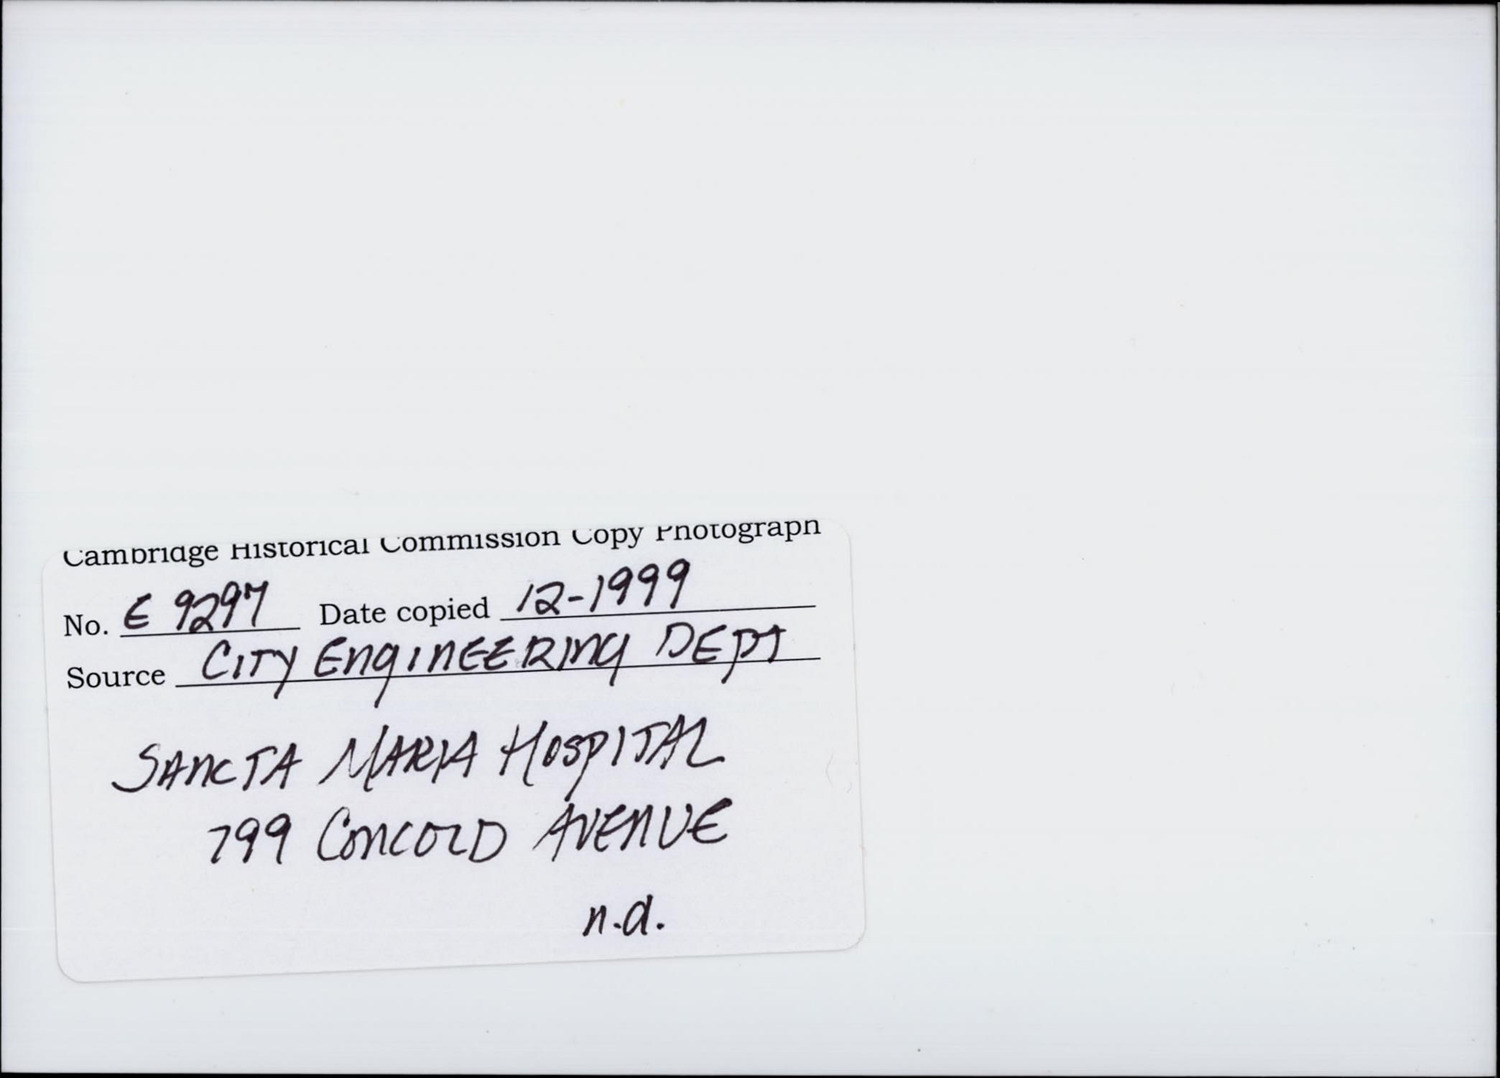 Cambridge Historical Commission Copy Photograph
No. E 9297 Date copied 12-1999
Source CITY ENGINEERING DEPT
SANCTA MARIA HOSPITAL
799 CONCORD AVENUE
n.d.